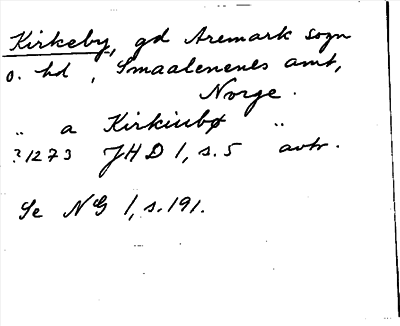 Kirkeby, gd Aremark sogn
o. hd , Smaalenenes amt,
Norge.
„ a Kirkiubø „
?1273 JHD 1, s.5 avtr.
Se NG 1, s.191.